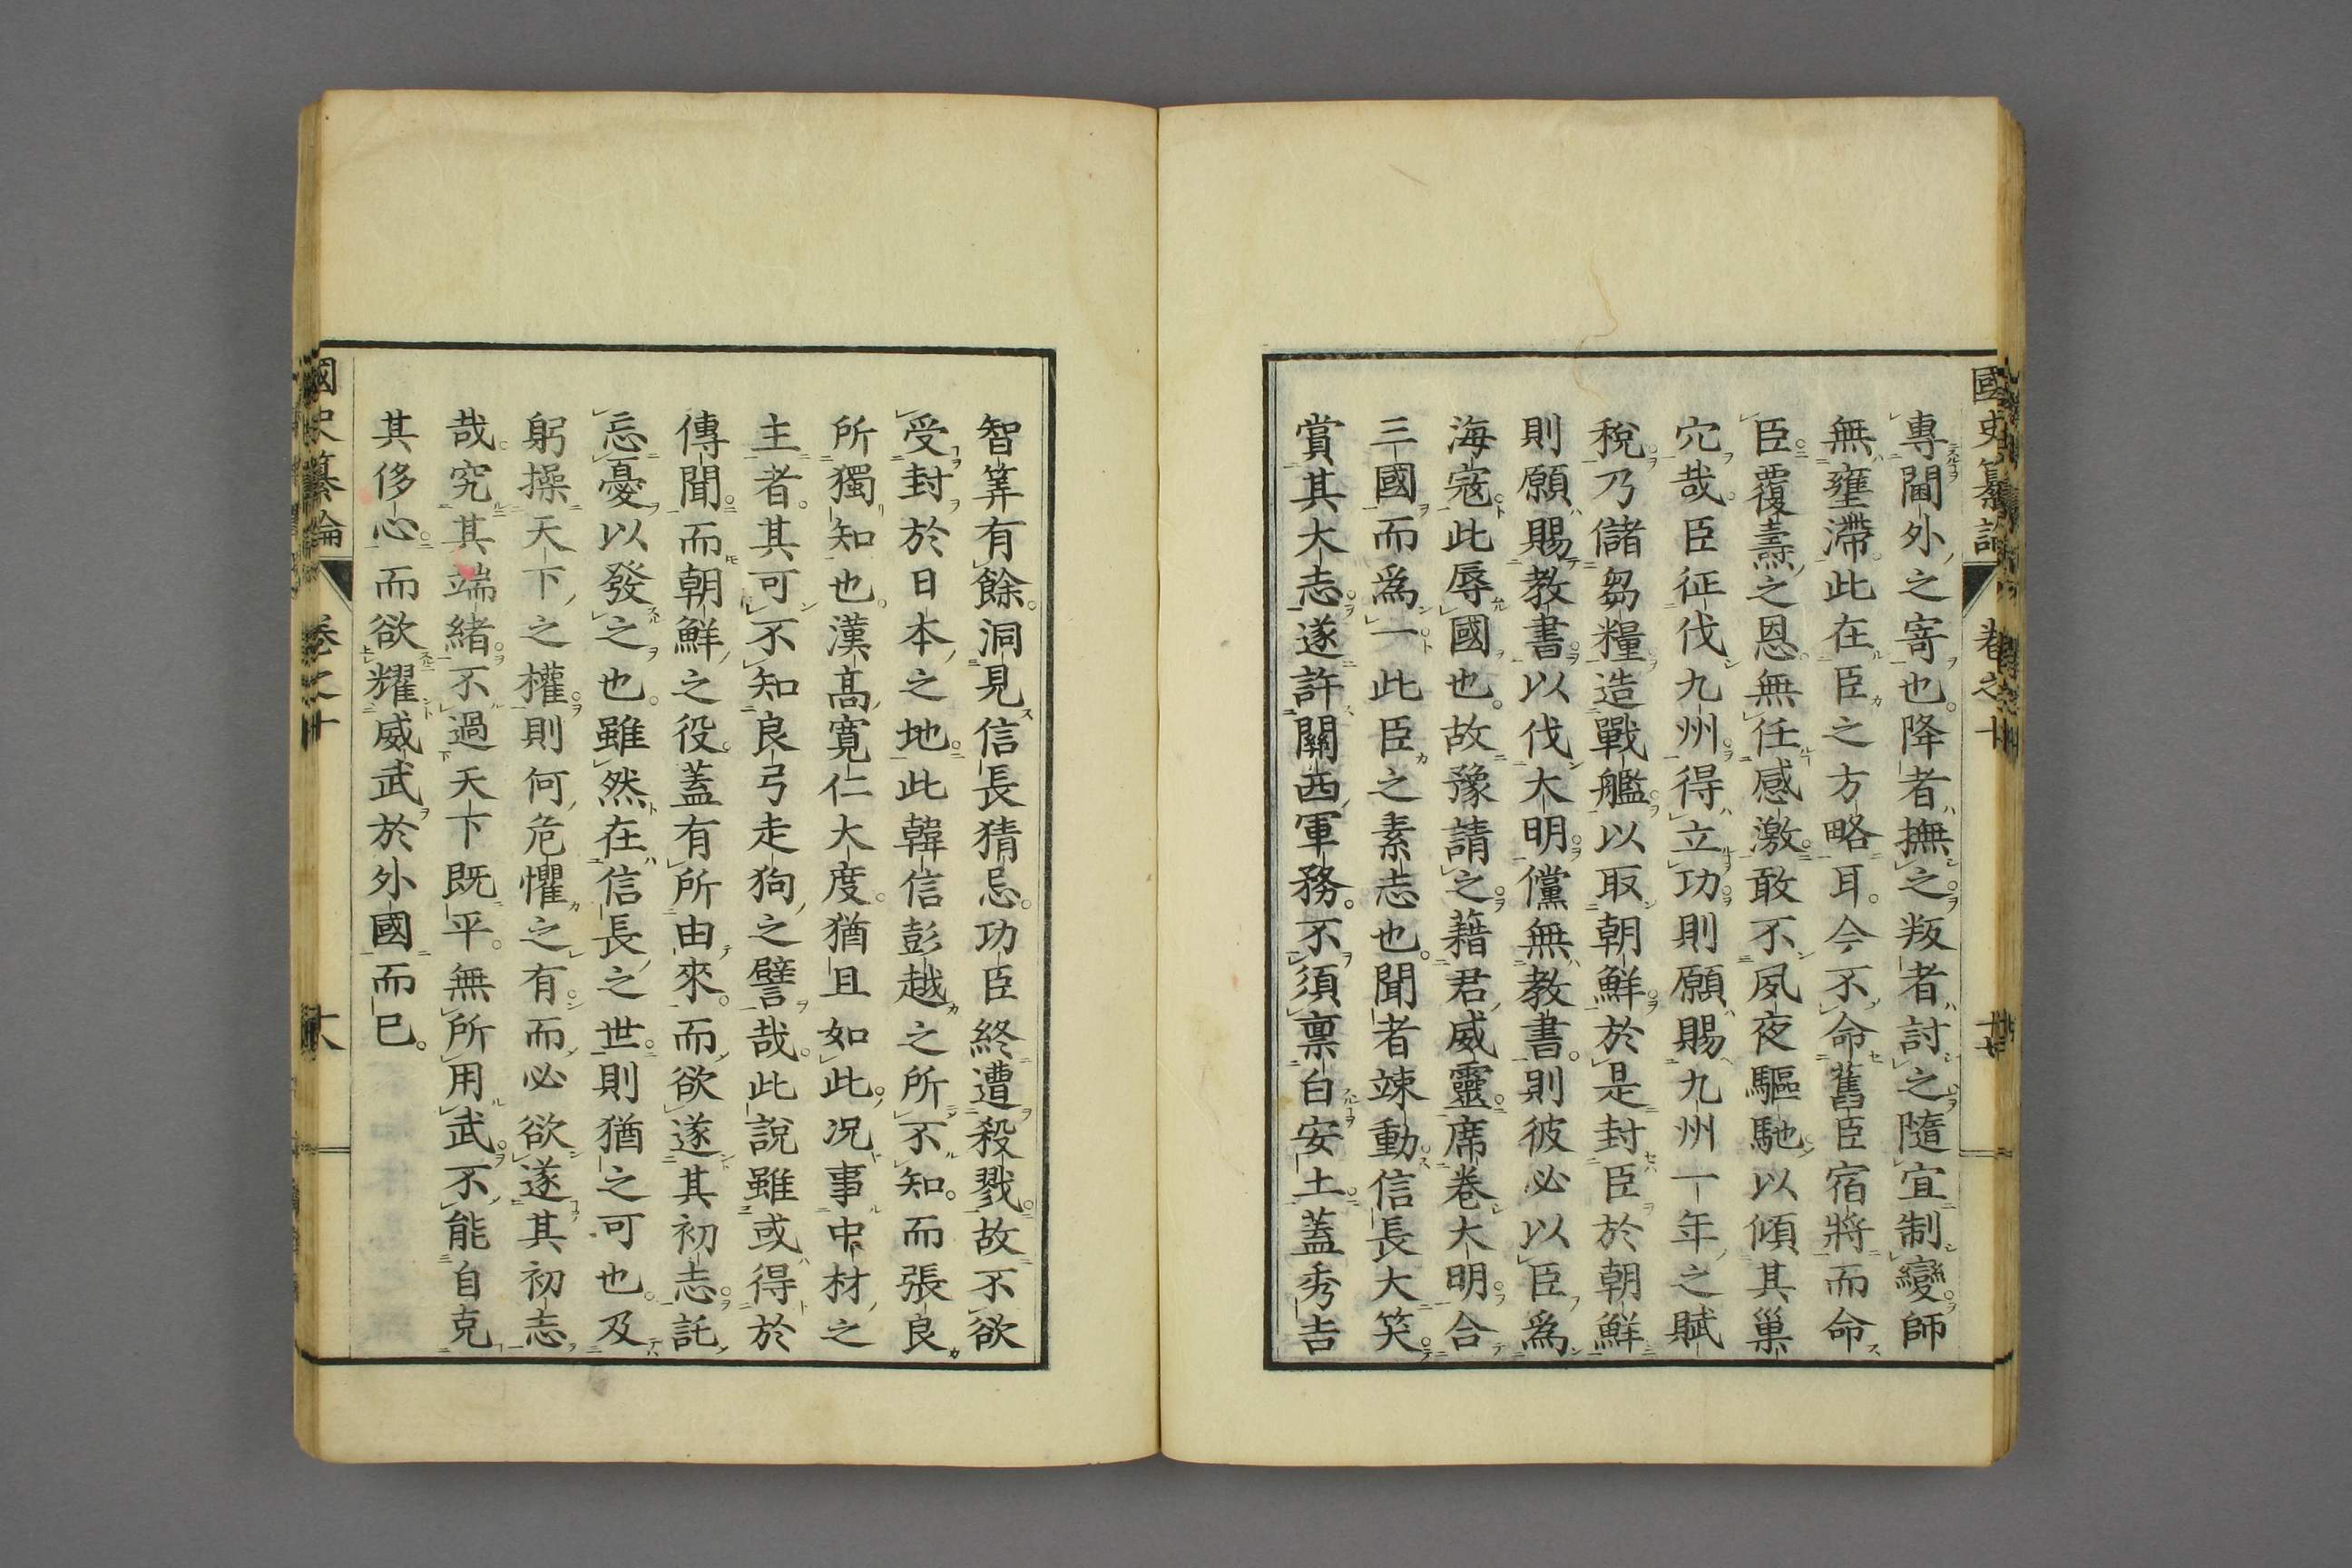 國史纂論 卷之十
專閫外之寄也。降者撫之叛者討之隨宜制變師
無壅滯。此在臣之方略耳。今不命舊臣宿將而命
臣覆燾之恩。無任感激。敢不夙夜驅馳。以傾其巢
穴哉。臣征伐九州。得立功則願賜九州一年之賦
稅。乃儲芻糧造戰艦。以取朝鮮。於是封臣於朝鮮
則願賜教書以伐大明。儻無教書。則彼必以臣爲
海寇。此辱國也。故豫請之。藉君威靈。席卷大明。合
三國而爲一。此臣之素志也。聞者竦動。信長大笑。
賞其大志。遂許關西軍務。不須禀白安土。蓋秀吉
智筭有餘。洞見信長猜忌。功臣終遭殺戮。故不欲
受封於日本之地。此韓信彭越之所不知。而張良
所獨知也。漢髙寬仁大度。猶且如此。况事中材之
主者。其可不知良弓走狗之譬哉。此說雖或得於
傳聞。而朝鮮之役。蓋有所由來。而欲遂其初志。託
忘憂以發之也。雖然在信長之世。則猶之可也。及
躬操天下之權。則何危懼之有。而必欲遂其初志
哉。究其端緒。不過天下既平。無所用武。不能自克
其侈心。而欲耀威武於外國而已。
國史纂論 卷之十